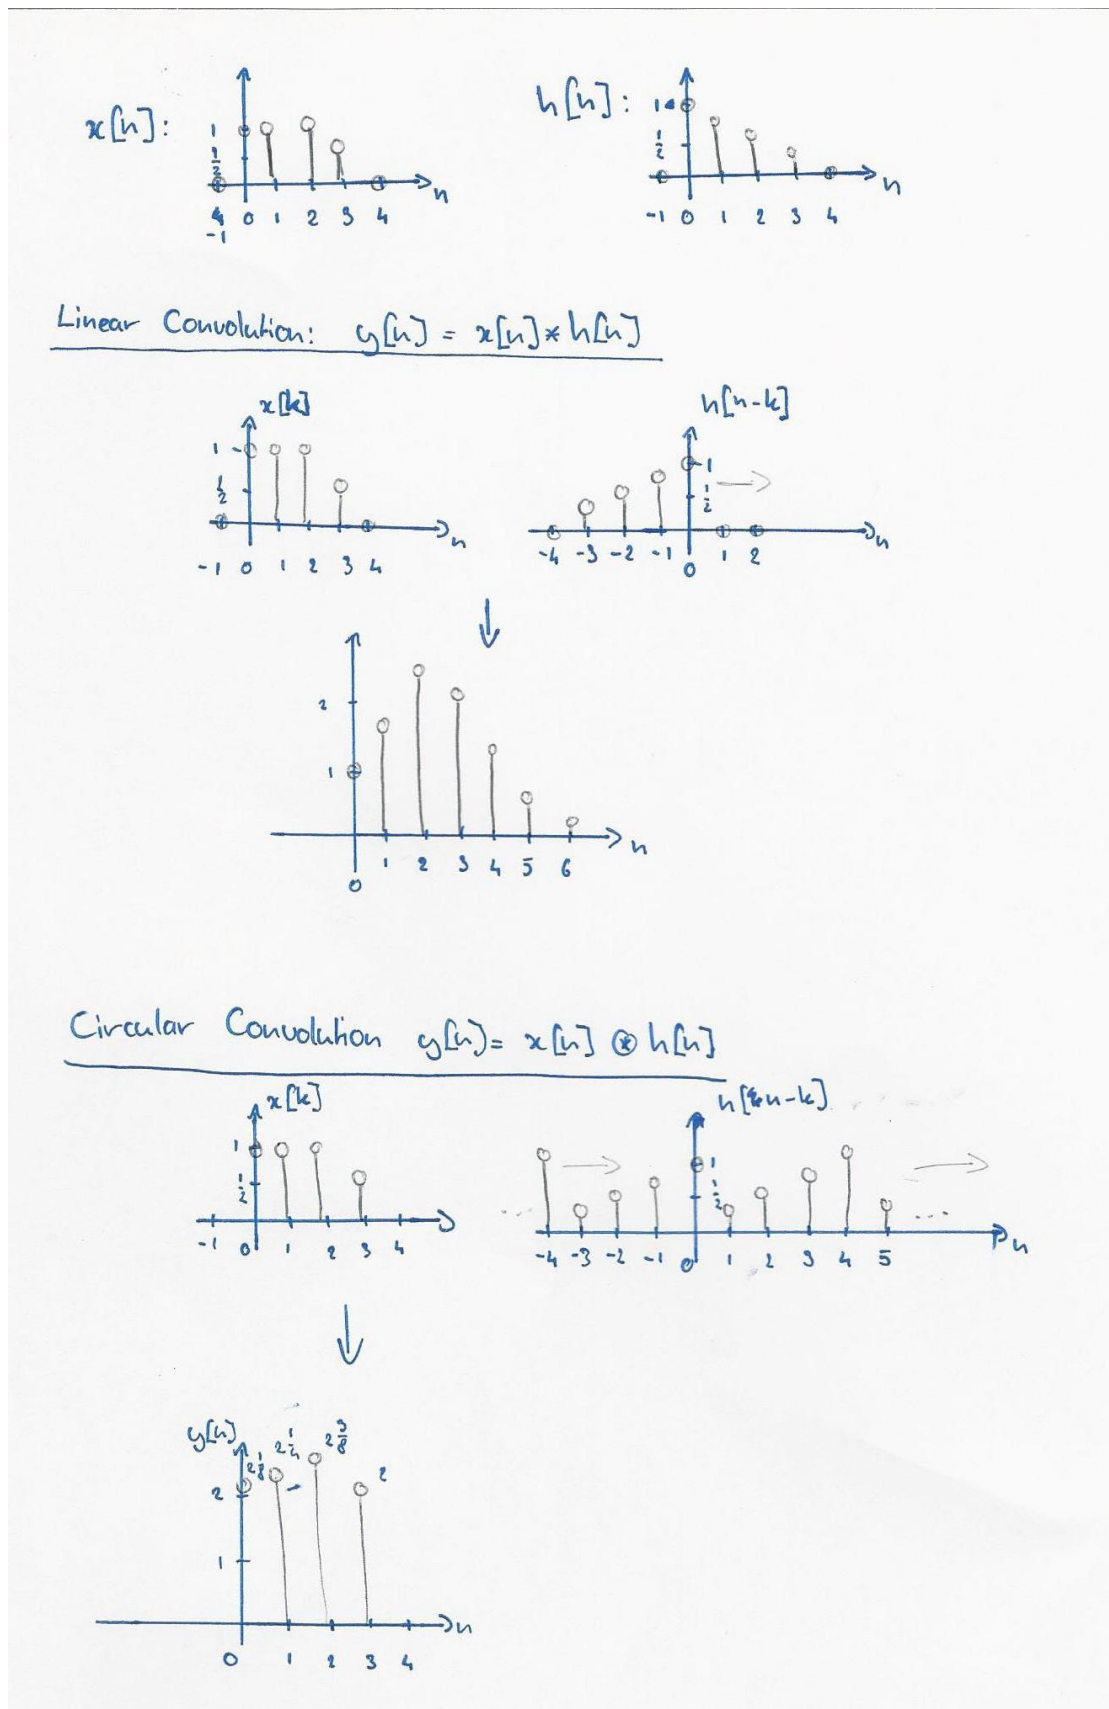 x[n]:
1
1/2
-1 0 1 2 3 4
n
h[n]:
1
1/2
-1 0 1 2 3 4
n
Linear Convolution: y[n] = x[n] * h[n]
x[k]
1
1/2
-1 0 1 2 3 4
n
h[n-k]
1
1/2
-4 -3 -2 -1 0 1 2
n
2
1
0 1 2 3 4 5 6
n
Circular Convolution y[n] = x[n] ⊛ h[n]
x[k]
1
1/2
-1 0 1 2 3 4
h[n-k]
1
1/2
... ...
-4 -3 -2 -1 0 1 2 3 4 5
n
y[n]
2 1/8 2 1/4 2 3/8 2
2
1
0 1 2 3 4
n